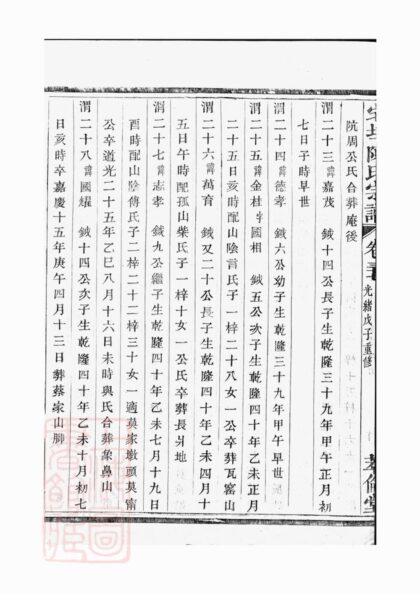 陳氏宗譜 卷 光緒戊子重修
阬周公氏合葬庵後
渭二十三諱嘉茂 鉞十四公長子生乾隆三十九年甲午正月初
七日子時早世
渭二十四諱德孝 鉞六公幼子生乾隆三十九年甲午早世
渭二十五諱金桂字國相 鉞五公次子生乾隆四十年乙未正月
二十五日亥時配山陰言氏子一梓二十八女一公卒葬瓦窰山
渭二十六諱萬育 鉞又二十公長子生乾隆四十年乙未四月十
五日午時配孤山柴氏子一梓十女一公氏卒葬長爿地
渭二十七諱志孝 鉞九公繼子生乾隆四十年乙未七月十九日
酉時配山陰傅氏子二梓二十二梓三十女一適莫家墩頭莫甯
公卒道光二十五年乙巳八月十六日未時與氏合葬象鼻山
渭二十八諱國耀 鉞十四公次子生乾隆四十年乙未十月初七
日亥時卒嘉慶十五年庚午四月十三日葬蔡家山脚